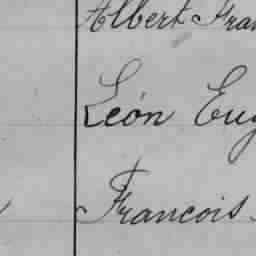 Albert Fran
Léon Eug
Francois